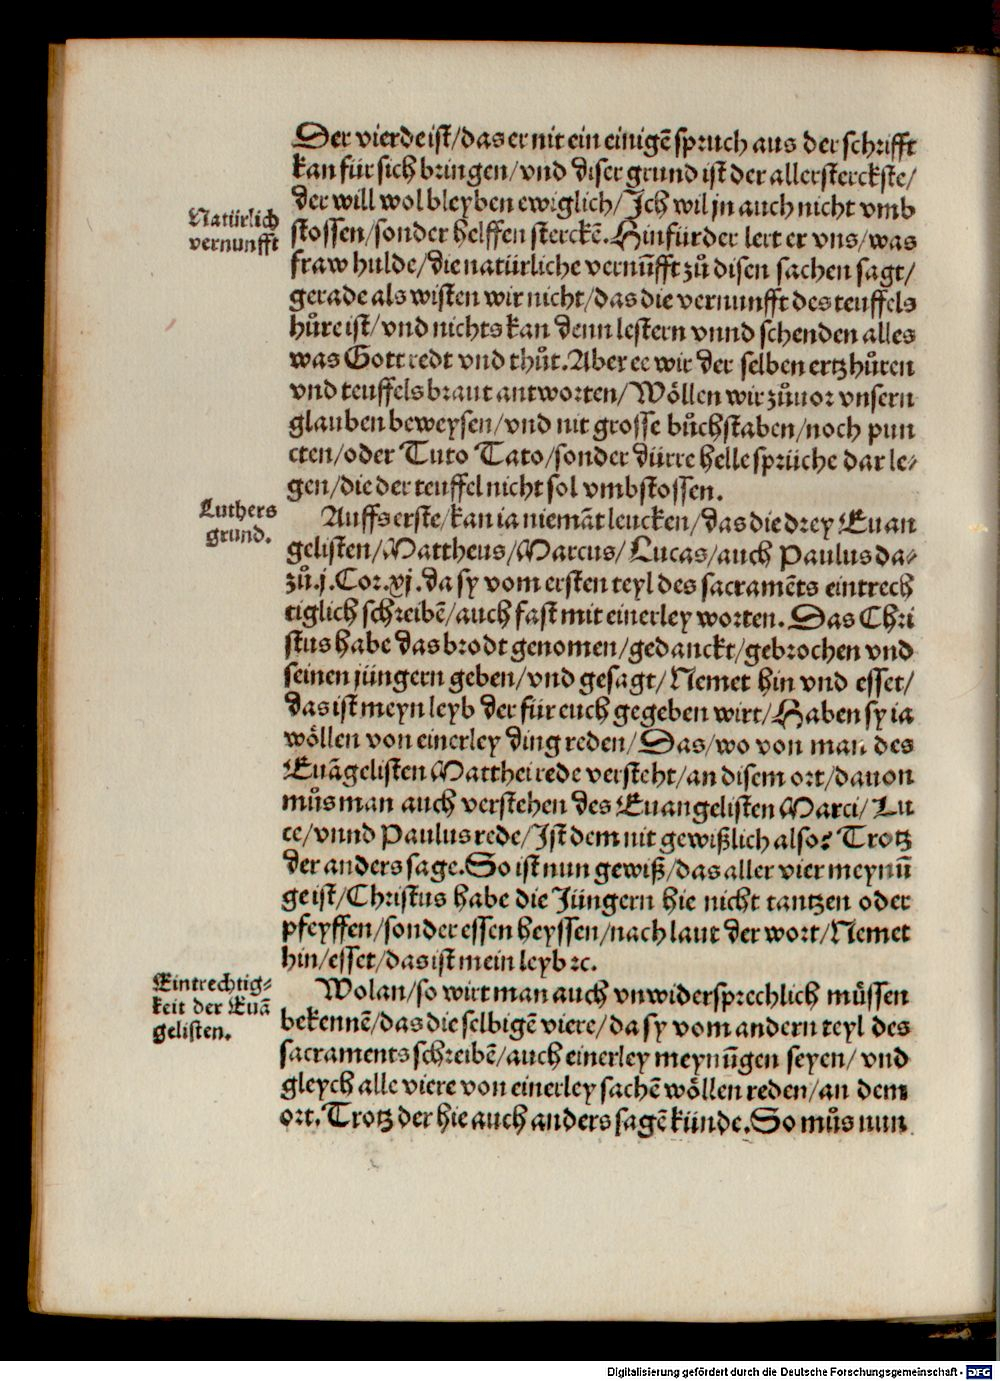 Der vierde ist/das er nit ein einigē spruch aus der schrifft
kan für sich bringen/vnd diser grund ist der allersterckste/
der will wol bleyben ewiglich/Ich wil jn auch nicht vmb
Natürlich
vernunfft
stossen/sonder helffen sterckē. Hinfürder lert er vns/was
fraw hulde/die natürliche vernūfft zů disen sachen sagt/
gerade als wisten wir nicht/das die vernunfft des teuffels
hůre ist/vnd nichts kan denn lestern vnnd schenden alles
was Gott redt vnd thůt. Aber ee wir der selben ertzhůren
vnd teuffels braut antworten/Wöllen wir zůuor vnsern
glauben beweysen/vnd nit grosse bůchstaben/noch pun
cten/oder Tuto Tato/sonder dürre helle sprüche dar le-
gen/die der teuffel nicht sol vmbstossen.
Luthers
grund.
Auffs erste/kan ia niemāt leucken/das die drey Euan
gelisten/Mattheus/Marcus/Lucas/auch Paulus da-
zů.j.Cor.xj.da sy vom ersten teyl des sacramēts eintrech
tiglich schreibē/auch fast mit einerley worten. Das Chri
stus habe das brodt genomen/gedanckt/gebrochen vnd
seinen jüngern geben/vnd gesagt/Nemet hin vnd esset/
das ist meyn leyb der für euch gegeben wirt/Haben sy ia
wöllen von einerley ding reden/Das/wo von man des
Euāgelisten Matthei rede versteht/an disem ort/dauon
můs man auch verstehen des Euangelisten Marci/Lu
ce/vnnd Paulus rede/Ist dem nit gewißlich also? Trotz
der anders sage. So ist nun gewiß/das aller vier meynū
ge ist/Christus habe die Jüngern hie nicht tantzen oder
pfeyffen/sonder essen heyssen/nach laut der wort/Nemet
hin/esset/das ist mein leyb ꝛc.
Eintrechtig-
keit der Euā
gelisten.
Wolan/so wirt man auch vnwidersprechlich müssen
bekennē/das die selbigē viere/da sy vom andern teyl des
sacraments schreibē/auch einerley meynūgen seyen/vnd
gleych alle viere von einerley sachē wöllen reden/an dem
ort. Trotz der hie auch anders sagē künde. So můs nun
Digitalisierung gefördert durch die Deutsche Forschungsgemeinschaft - DFG